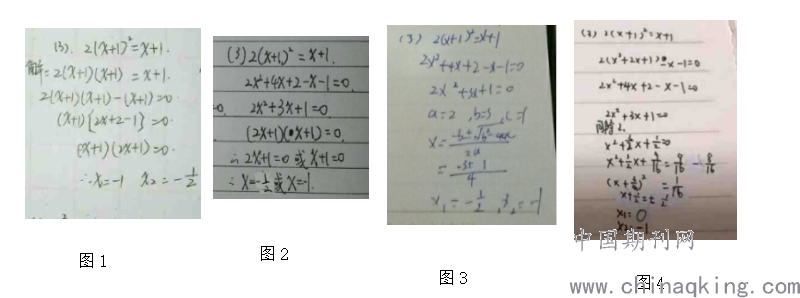 (3). 2(x+1)²=x+1.
解:2(x+1)(x+1)=x+1.
2(x+1)(x+1)-(x+1)=0.
(x+1)[2x+2-1]=0.
(x+1)(2x+1)=0.
∴x=-1 x₂=-1/2
图1
(3) 2(x+1)²=x+1.
2x²+4x+2-x-1=0.
2x²+3x+1=0.
(2x+1)(x+1)=0.
∴2x+1=0或x+1=0
∴x=-1/2或x=-1.
图2
(3) 2(x+1)²=x+1
2x²+4x+2-x-1=0
2x²+3x+1=0
a=2 ,b=3 ,c=1
2a
4
x₁=-1/2, x₂=-1
图3
(3) 2(x+1)²=x+1
2(x²+2x+1)-x-1=0
2x²+4x+2-x-1=0
2x²+3x+1=0
x₁=0
x₂=-1
图4
中国期刊网
www.chinaqking.com